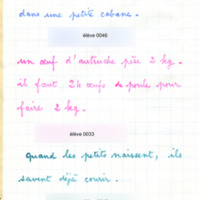 dans une petite cabane.
élève 0046
un œuf d'autruche pèse 2 kg.
il faut 24 œufs de poule pour
faire 2 kg.
élève 0033
quand les petits naissent, ils
savent déjà courir.